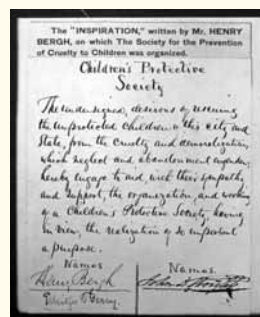 The "INSPIRATION," written by Mr. HENRY
BERGH, on which The Society for the Prevention
of Cruelty to Children was organized.
Children's Protective
Society
The undersigned, desirous of rescuing
the unprotected children of this city and
State, from the cruelty and demoralization,
which neglect and abandonment engender;
hereby engage to aid, with their sympathy
and support, the organization, and working
of a Children's Protective Society, having
in view, the realization of so important
a purpose.
Names Names
Henry Bergh
Elbridge T. Gerry